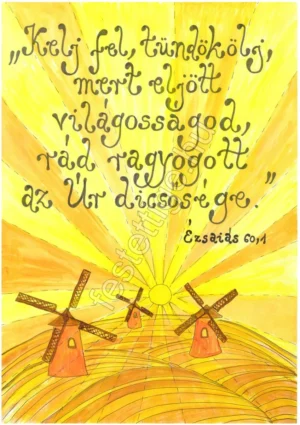 „Kelj fel, tündökölj,
mert eljött
világosságod,
rád ragyogott
az Úr dicsősége.”
Ézsaiás 60,1